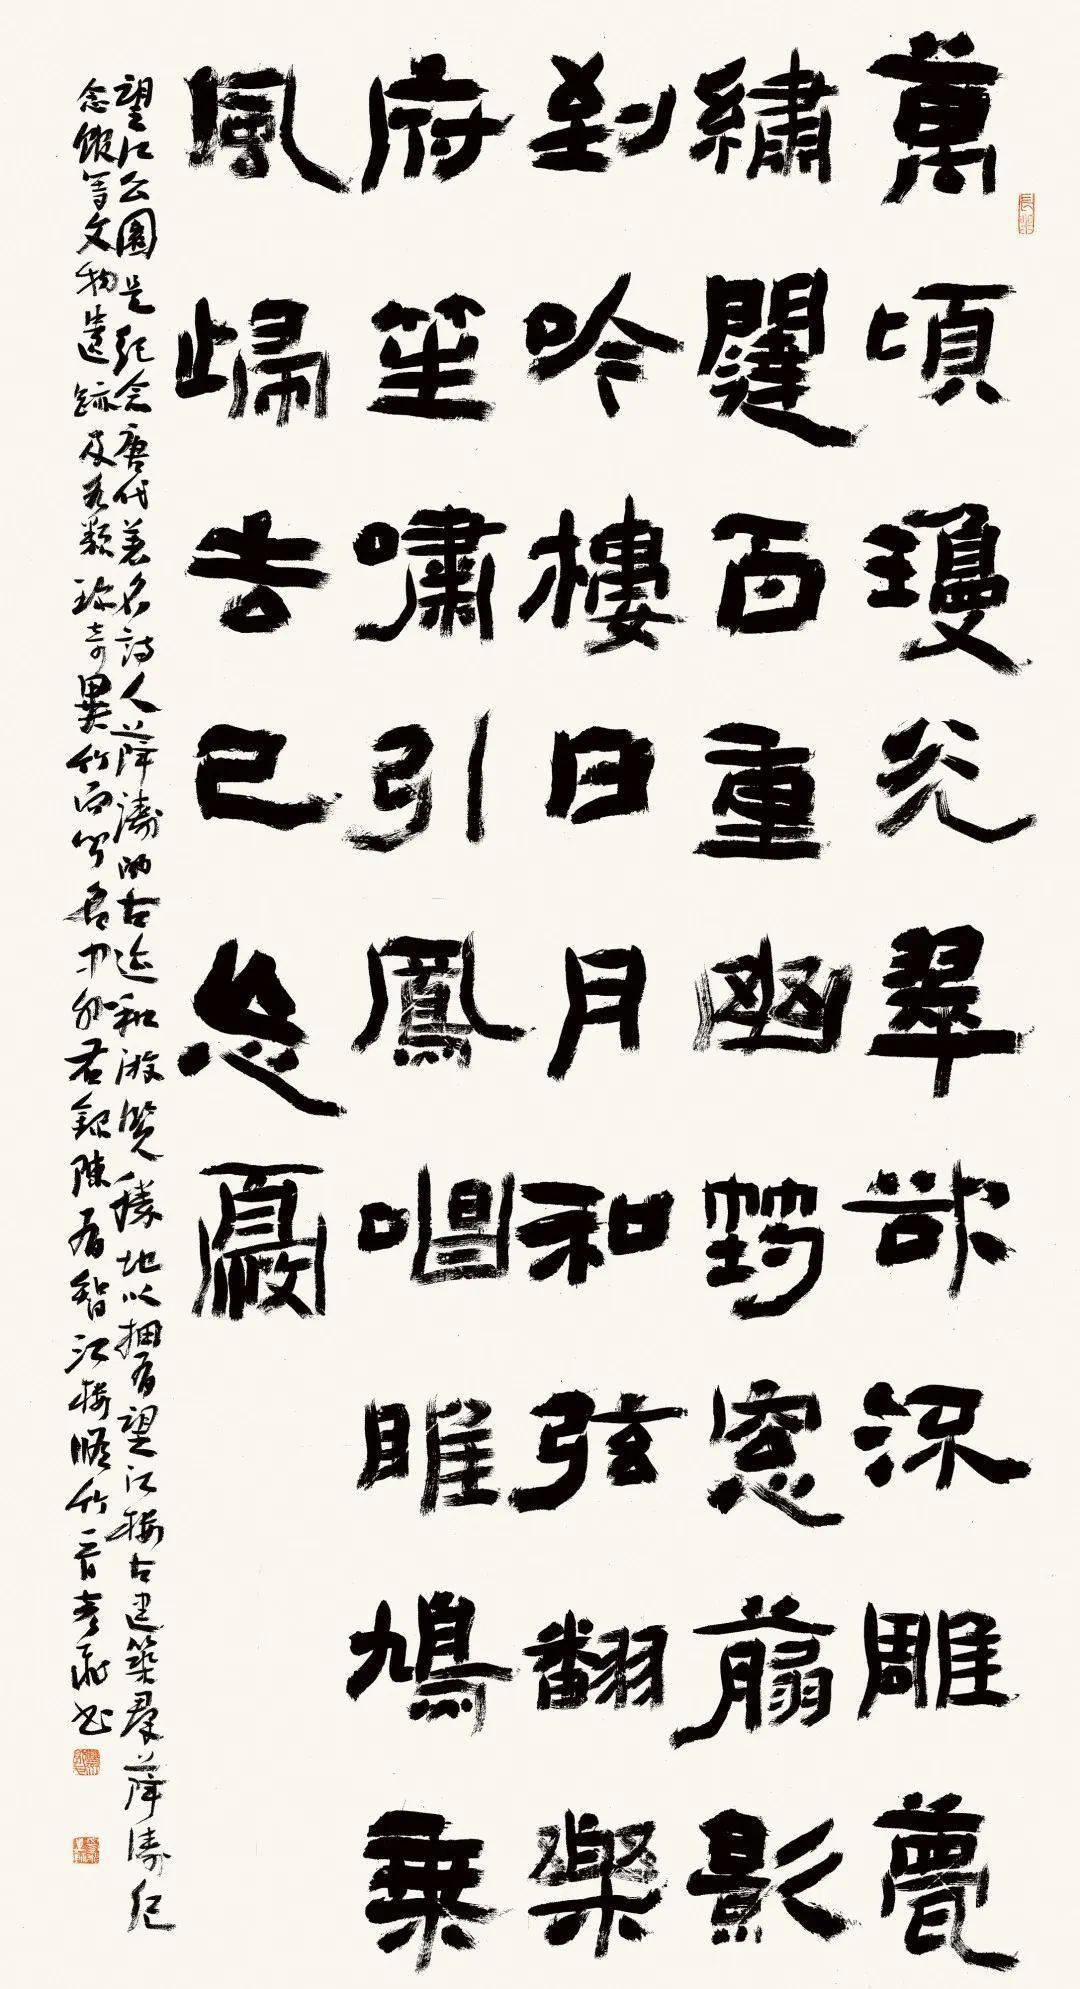 萬頃瓊光翠欲深雕甍
繡闥百重幽筠窓翦影
到吟樓日月和弦翻樂
府笙嘯引鳳唱雎鳩乘
風歸去已忘憂
望江公園是紀念唐代著名詩人薛濤的古迹和游覽勝地以擁有望江樓古建築群薛濤紀
念館等文物遺跡及各類珍奇異竹而聞名中外右錄陳有智江樓脩竹一首書